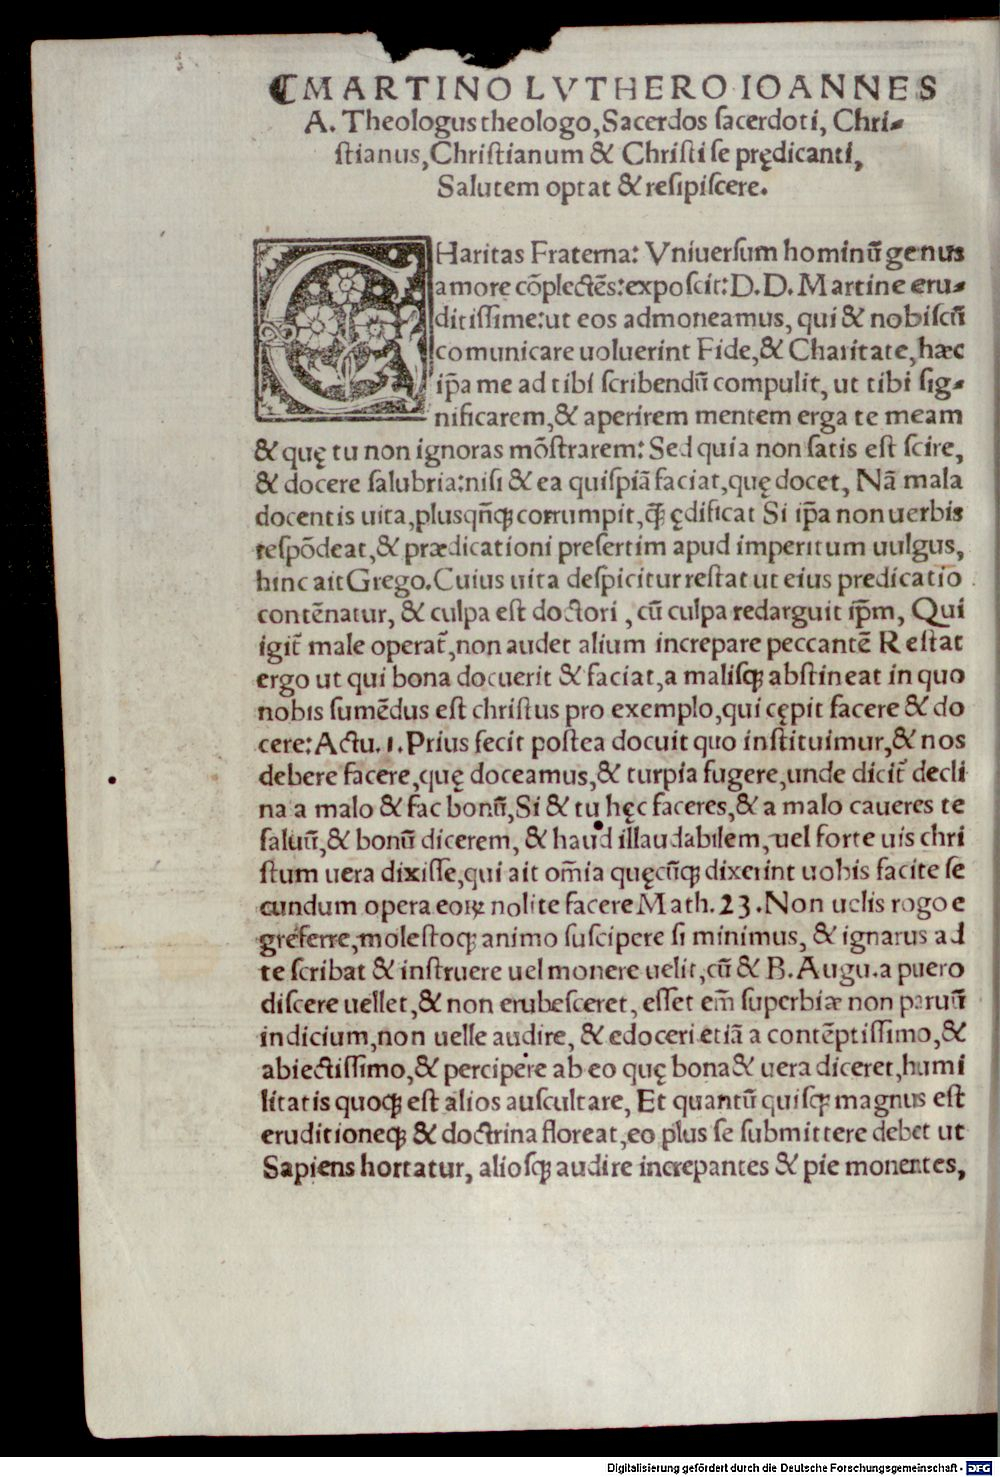 ☾MARTINO LVTHERO IOANNES
A. Theologus theologo, Sacerdos sacerdoti, Chri⸗
stianus, Christianum & Christi se prędicanti,
Salutem optat & resipiscere.
CHaritas Fraterna: Vniuersum hominū genus
amore cōplectēs: exposcit: D. D. Martine eru⸗
ditissime: ut eos admoneamus, qui & nobiscū
comunicare uoluerint Fide, & Charitate, hæc
ip̄a me ad tibi scribendū compulit, ut tibi sig⸗
nificarem, & aperirem mentem erga te meam
& quę tu non ignoras mōstrarem: Sed quia non satis est scire,
& docere salubria: nisi & ea quispiā faciat, quę docet, Nā mala
docentis uita, plusqñꝗ corrumpit, ꝗ̄ ędificat Si ip̄a non uerbis
respōdeat, & prædicationi presertim apud imperitum uulgus,
hinc ait Grego. Cuius uita despicitur restat ut eius predicatio
contēnatur, & culpa est doctori, cū culpa redarguit ip̄m, Qui
igit̄ male operat̄, non audet alium increpare peccantē Restat
ergo ut qui bona docuerit & faciat, a malisqꝫ abstineat in quo
nobis sumēdus est christus pro exemplo, qui cępit facere & do
cere: Actu. 1. Prius fecit postea docuit quo instituimur, & nos
debere facere, quę doceamus, & turpia fugere, unde dicit̄ decli
na a malo & fac bonū, Si & tu hęc faceres, & a malo caueres te
saluū, & bonū dicerem, & haud illaudabilem, uel forte uis chri
stum uera dixisse, qui ait om̄ia quęcūqꝫ dixerint uobis facite se
cundum opera eoꝝ nolite facere Math. 23. Non uelis rogo e
gre ferre, molestoqꝫ animo suscipere si minimus, & ignarus ad
te scribat & instruere uel monere uelit, cū & B. Augu. a puero
discere uellet, & non erubesceret, esset em̄ superbiæ non paruū
indicium, non uelle audire, & edoceri etiā a contēptissimo, &
abiectissimo, & percipere ab eo quę bona & uera diceret, humi
litatis quoqꝫ est alios auscultare, Et quantū quisqꝫ magnus est
eruditioneqꝫ & doctrina floreat, eo plus se submittere debet ut
Sapiens hortatur, aliosqꝫ audire increpantes & pie monentes,
Digitalisierung gefördert durch die Deutsche Forschungsgemeinschaft - DFG